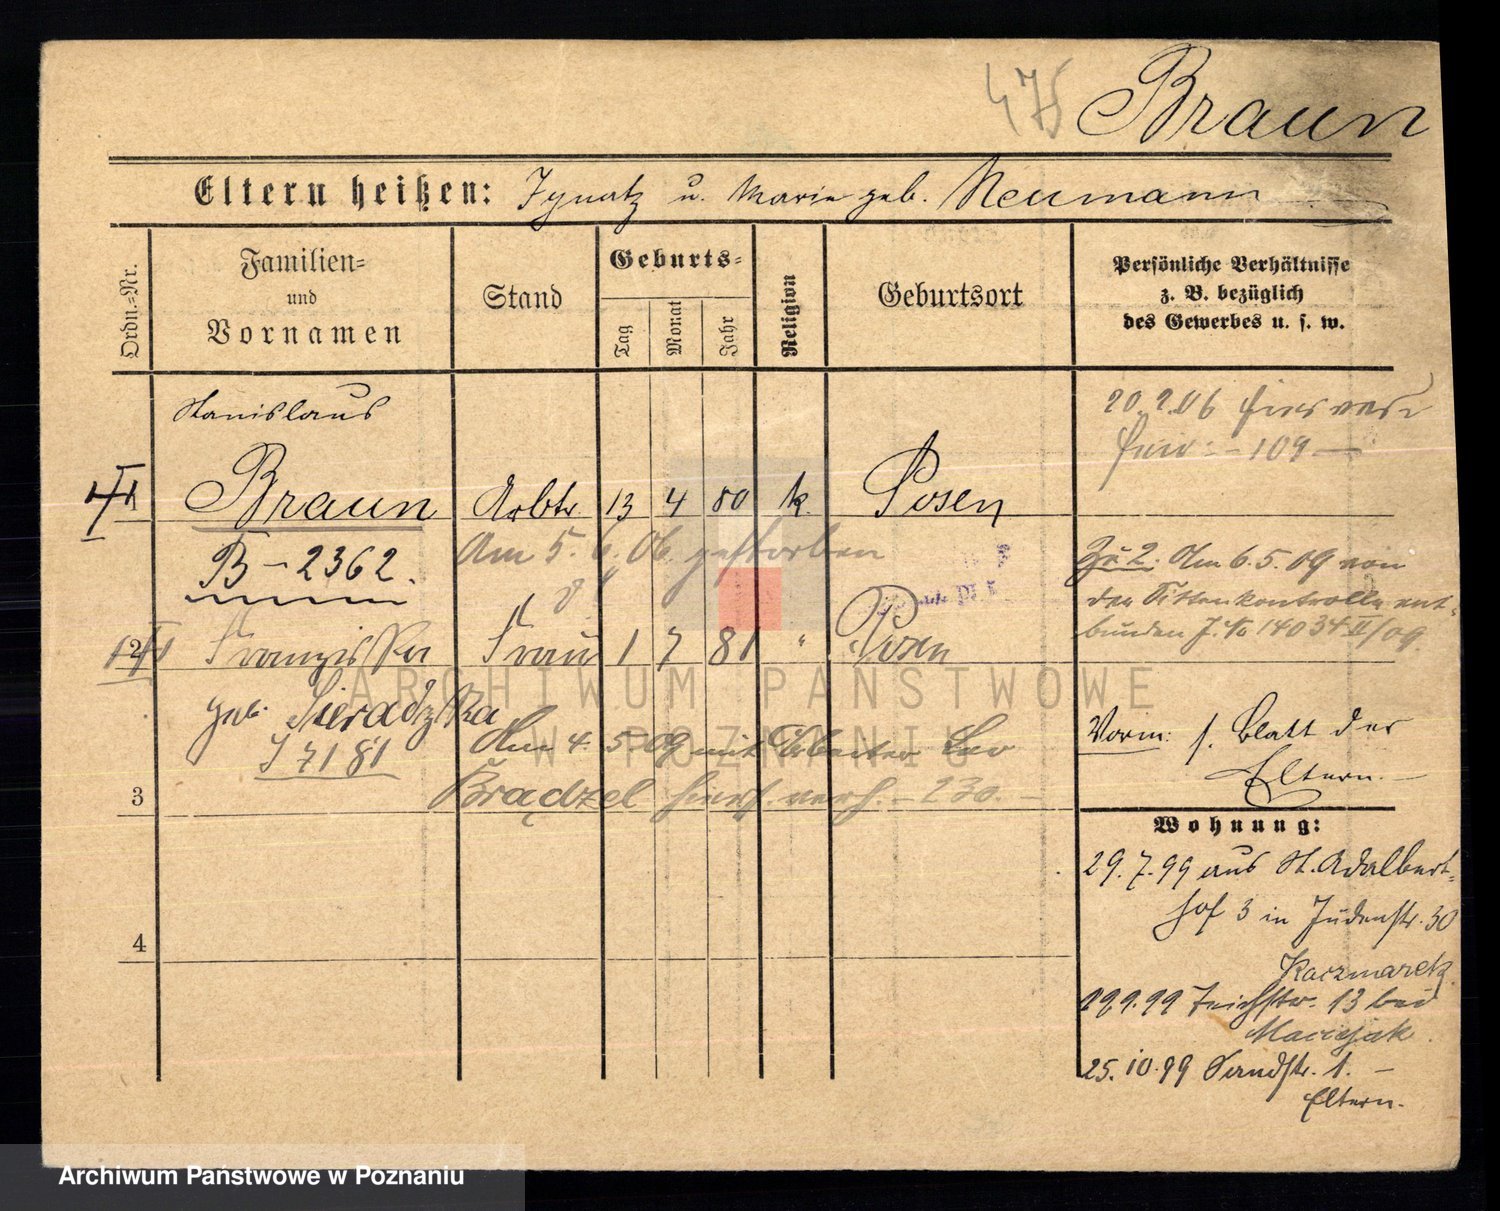 475 Braun
Eltern heißen: Ignatz u. Marie geb. Neumann
Ordn.-Nr.
Familien-
und
Vornamen
Stand
Geburts-
Tag
Monat
Jahr
Religion
Geburtsort
Persönliche Verhältnisse
z. B. bezüglich
des Gewerbes u. s. w.
Stanislaus
Braun Arbtr 13 4 80 k. Posen
20.2.06
109
B-2362.
Am 5. 6. 06. gestorben
2 Franziska Frau 1 7 81 " Posen
geb. Sieradzka
S 7181
Am 4. 5. 09 mit Arbeiter Leo
Bradzel hiers. verh. - 230.
Zu 2. Am 6.5.09 von
der Sittenkontrolle ent-
bunden J. No 14034 II/09.
Vorm: s. Blatt der
Eltern.
3
Wohnung:
29.7.99 aus St. Adalbert-
hof 3 in Judenstr. 30
Kaczmarek
4
Teichstr. 13 bei
Maciejak.
25.10.99 Sandstr. 1. -
Eltern.
ARCHIWUM PAŃSTWOWE
W POZNANIU
Archiwum Państwowe w Poznaniu